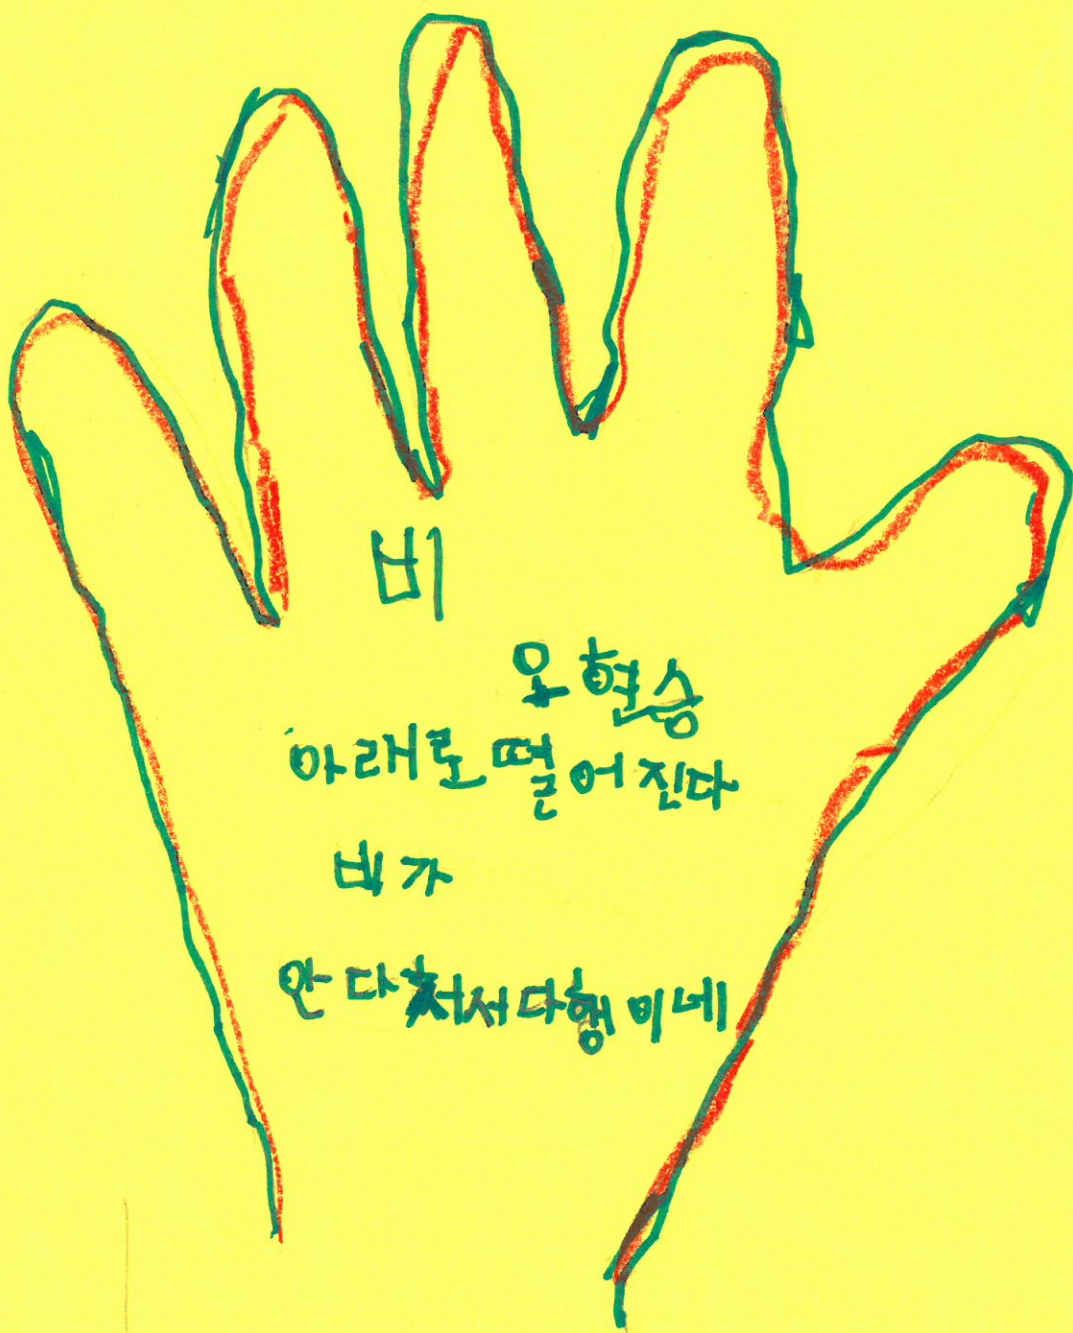 비
오현승
아래로떨어진다
비가
안다처서다행이네